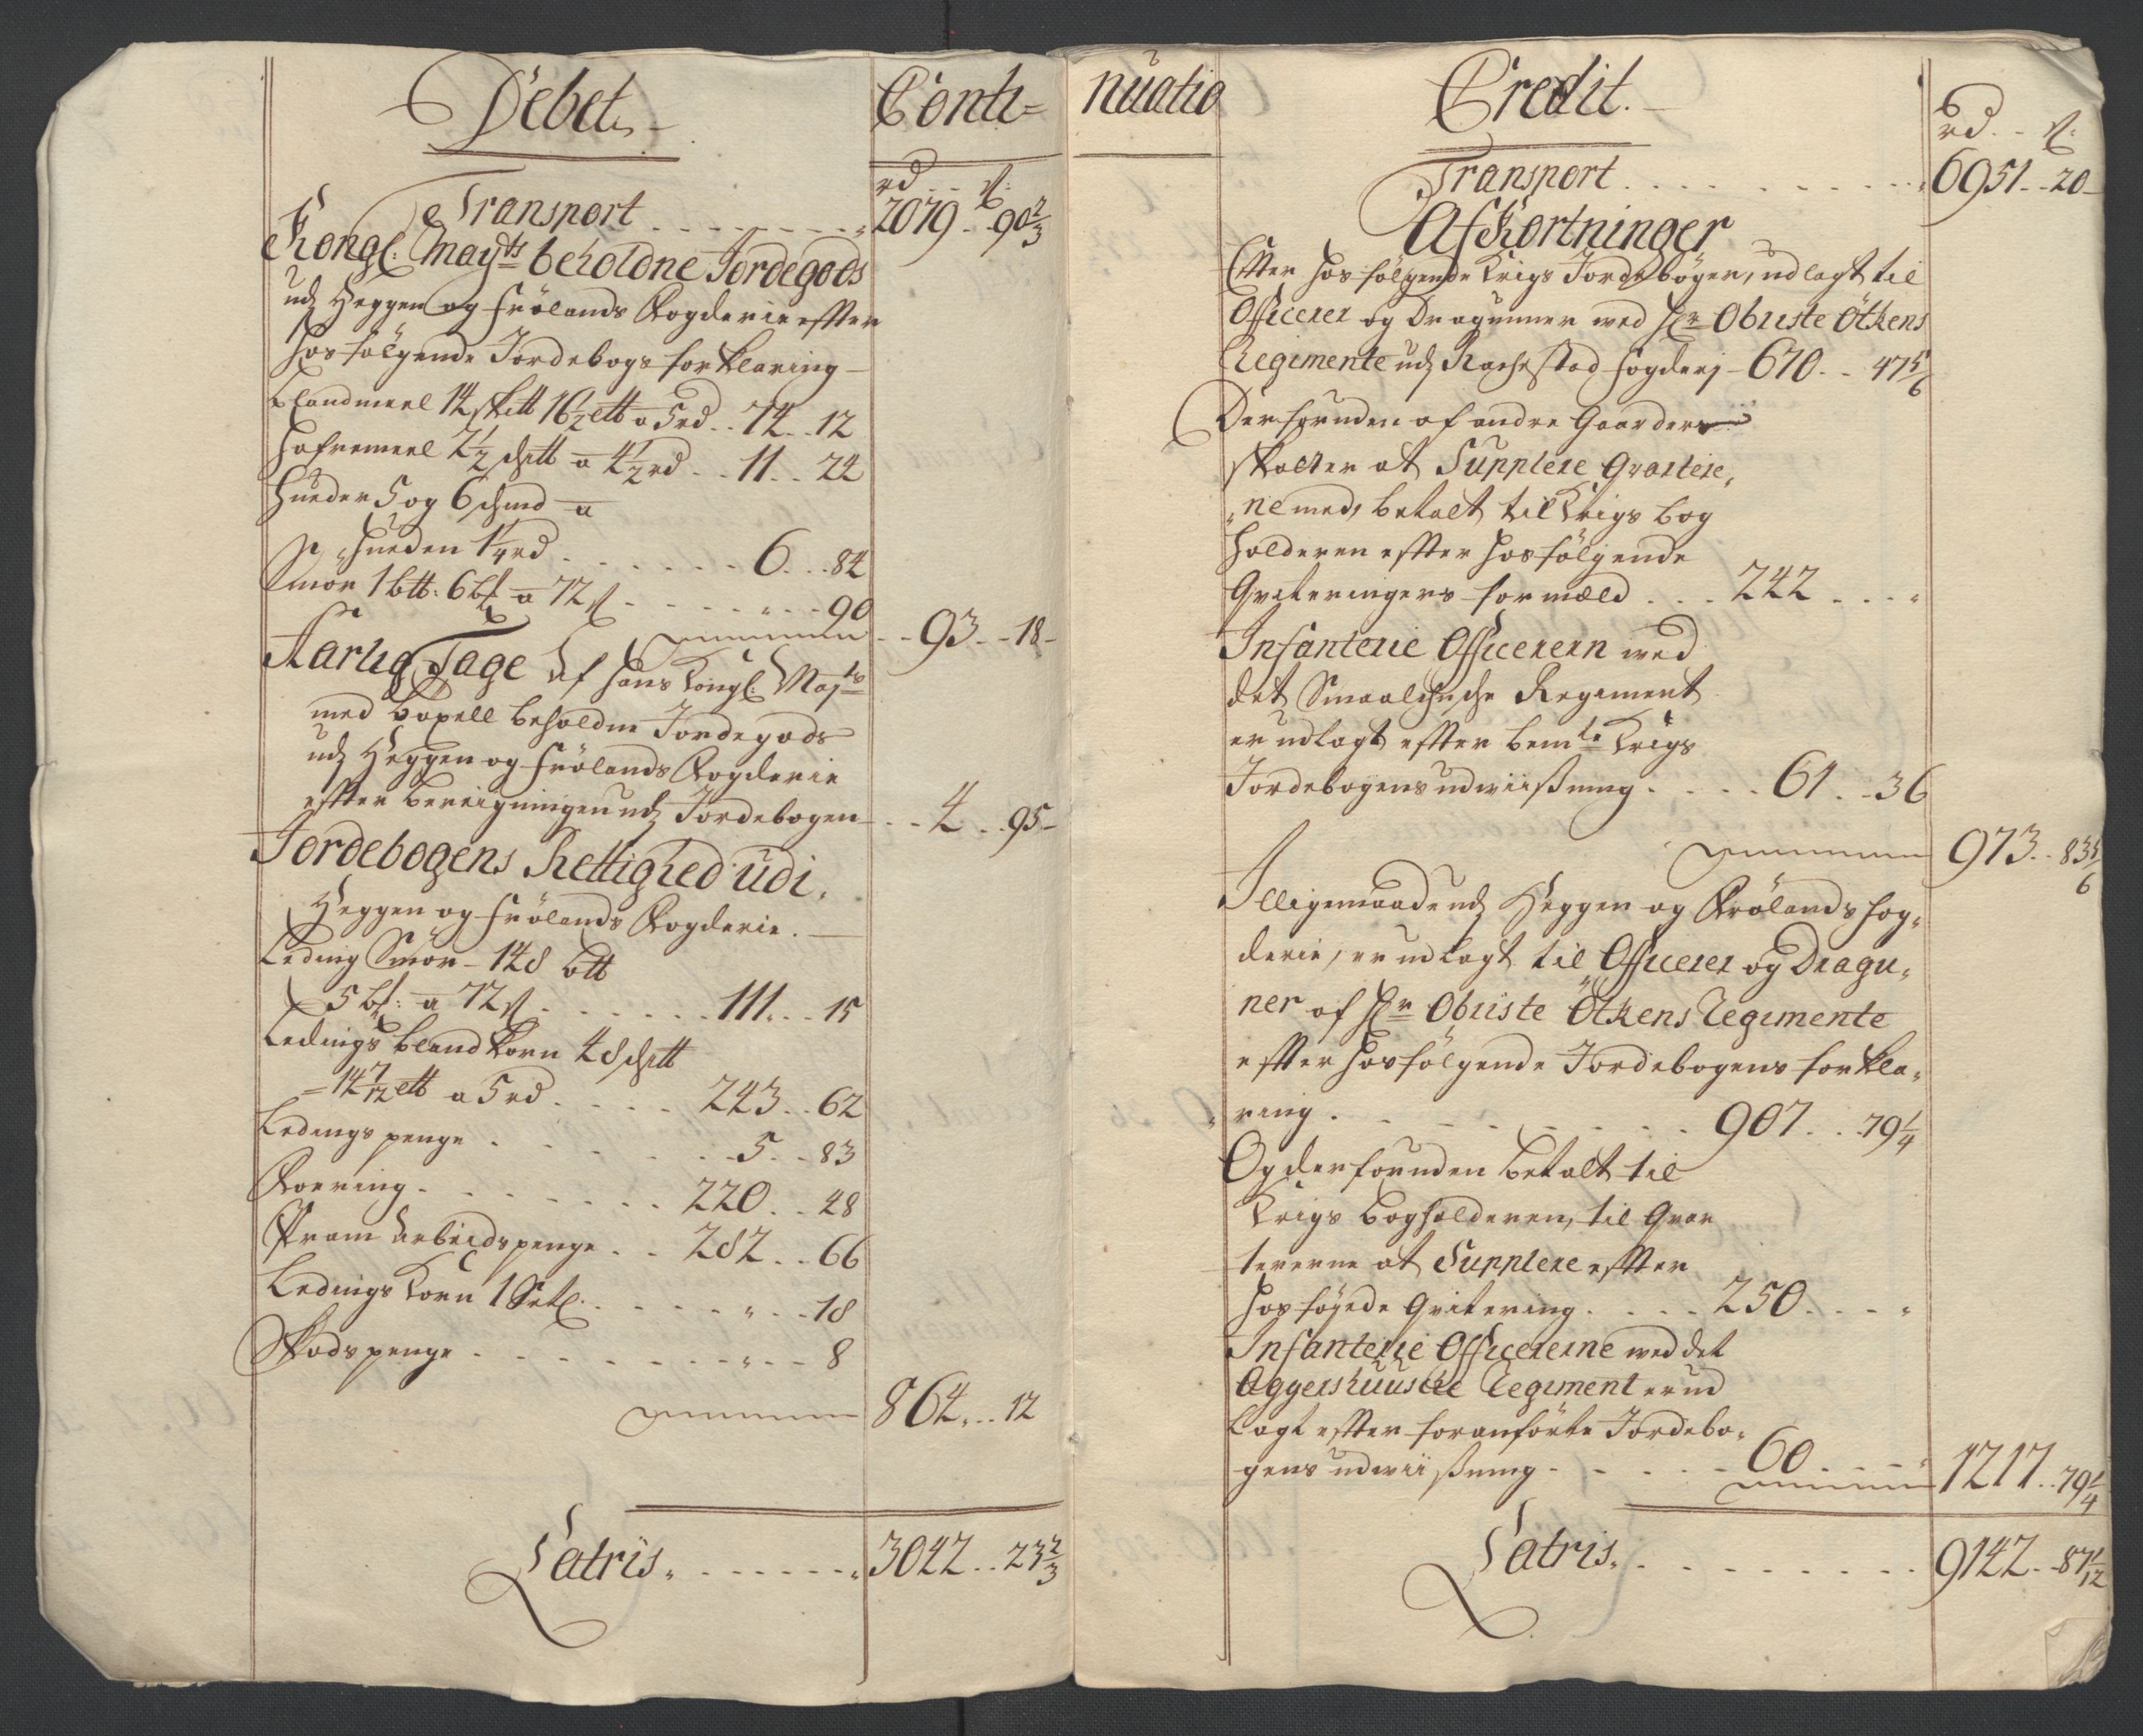 Debet
Conti=
rd - ß:
Transport - - - - 2079 - 90 2/3
Kongl: Mayts beholdne Jordegods
udj Heggen og Frölands Fogderie effter
hosfölgende Jordebogs forklaring
Blandmeel 14 skitt 16 1/2 ett a 5 rd - 74 - 12
Hafremeel 2 1/2 schitt a 4 1/2 rd - 11 - 24
Hueder 5 og 6 schind a
Hueden 1 1/4 rd - - - 6 - 84
Smör 1 btt: 6 bl a 72 ß - - - " - 90
- 93 - 18 -
Aarlig Tage Af Hans Kongl: Mayts
med bøxell beholdne Jordegods
udj Heggen og Frölands Fogderie
effter beregningen udj Jordebogen - 4 - 95 -
Jordebogens Rettighed udi
Heggen og Frölands Fogderie.
Leding Smör - 148 btt
5 bl: a 72 ß - - - 111 - 15
Ledings bland korn 48 schitt
= 14 7/12 ett a 5 rd - - - 243 - 62
Ledings penge - - - 5 - 83
Foering - - - 220 - 48
Pram Arbeidspenge - - 282 - 66
Ledings Korn 1 Setl: - - - " - 18
Skads penge - - - " - 8
864 - 12
Latris - - - 3042 - 23 2/3
nuatio
Credit.
rd - ß:
Transport - - - 6951 - 20 -
Afkortninger
Effter hosfölgende Krigs Jordebøger, udlagt til
Officerer og Dragunner wed Hr Obriste Ötkens
Regimente udj Rachestad fogderj - 670 - 47 5/6
Der foruden af andre Gaarders
skatter at Supplere Qvartere,
"ne med, betalt til Krigs bog
holderen effter hosfölgende
Qviteringers formæld - - 242 - - "
Infanterie Officerern wed
det Smaalehnske Regiment
er udlagt effter bemte Krigs
Jordebogens udwiißning - - - 61 - 36
973 - 83 5/6
J lligemaade udj Heggen og Frölands fog,
derie, er udlagt til Officerer og Dragu,
ner af Hr Obriste Ötkens Regimente
effter hosfölgende Jordebogens forkla,
ring - - - 907 - 79 1/4
Og der foruden betalt til
Krigs bogholderen, til Qvar
tererne at Supplere effter
hosföyede Qvitering - - - 250 - - "
Infanterie Officererne wed det
Aggershuusche Regiment er ud
lagt effter foranförte Jordebo,
gens udwiißning - - - 60 - - -
1217 - 79 1/4
Latris - - - 9142 - 87 1/12